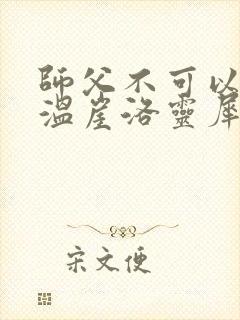 師父不可以
溫崖洛靈犀
宋文便